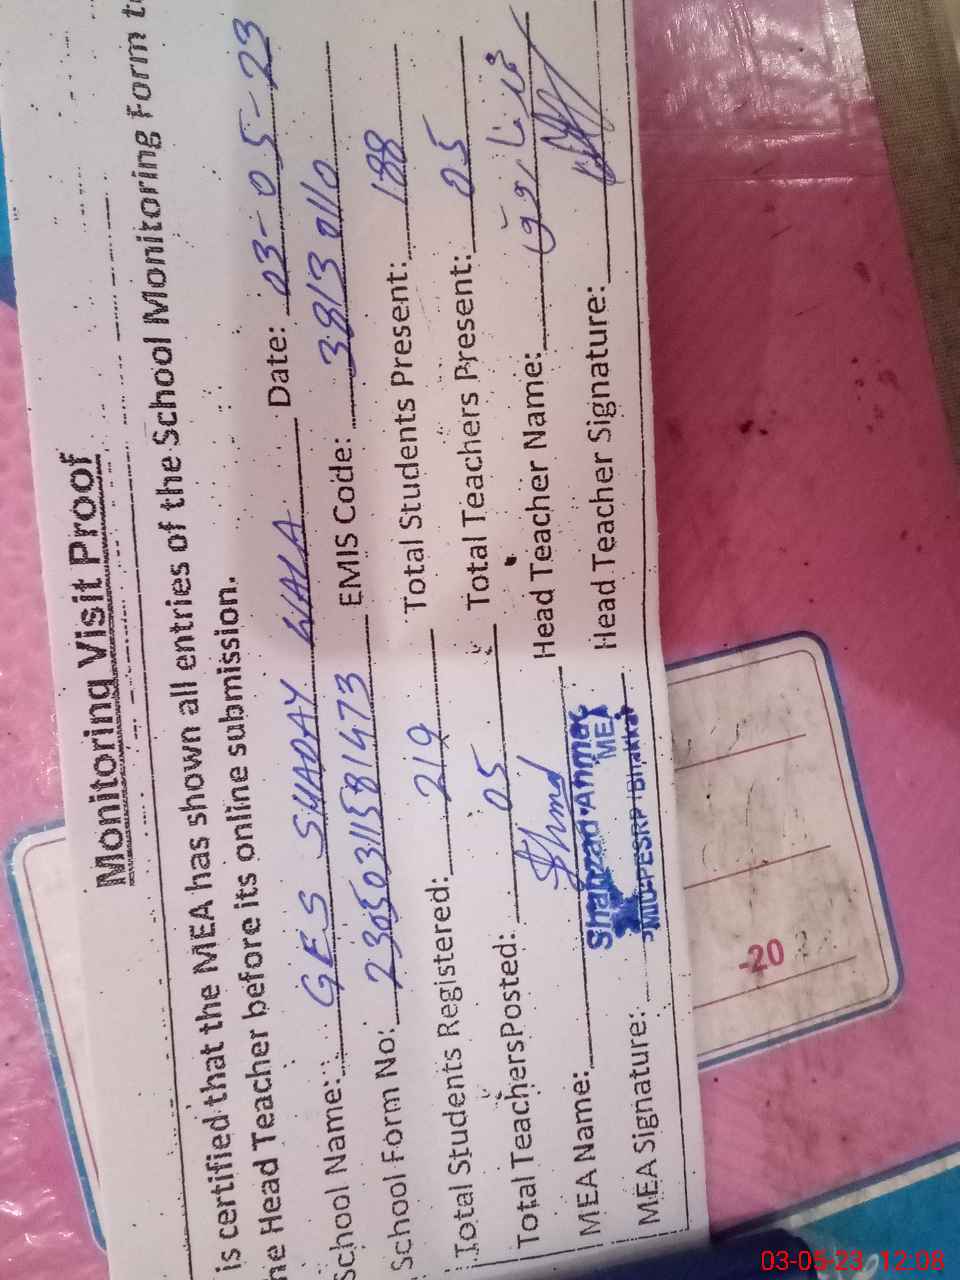 Monitoring Visit Proof
is certified that the MEA has shown all entries of the School Monitoring Form to
he Head Teacher before its online submission.
School Name: GES SHADAY WALA Date: 03-05-23
School Form No: 23050311581473 EMIS Code: 38130110
Total Students Registered: 219 Total Students Present: 188
Total Teachers Posted: 05 Total Teachers Present: 05
MEA Name: Shahzad Ahmad Head Teacher Name:
MEA
MEA Signature: PMIU-PESRP Bhakkar Head Teacher Signature:
-20
03-05-23 12:08